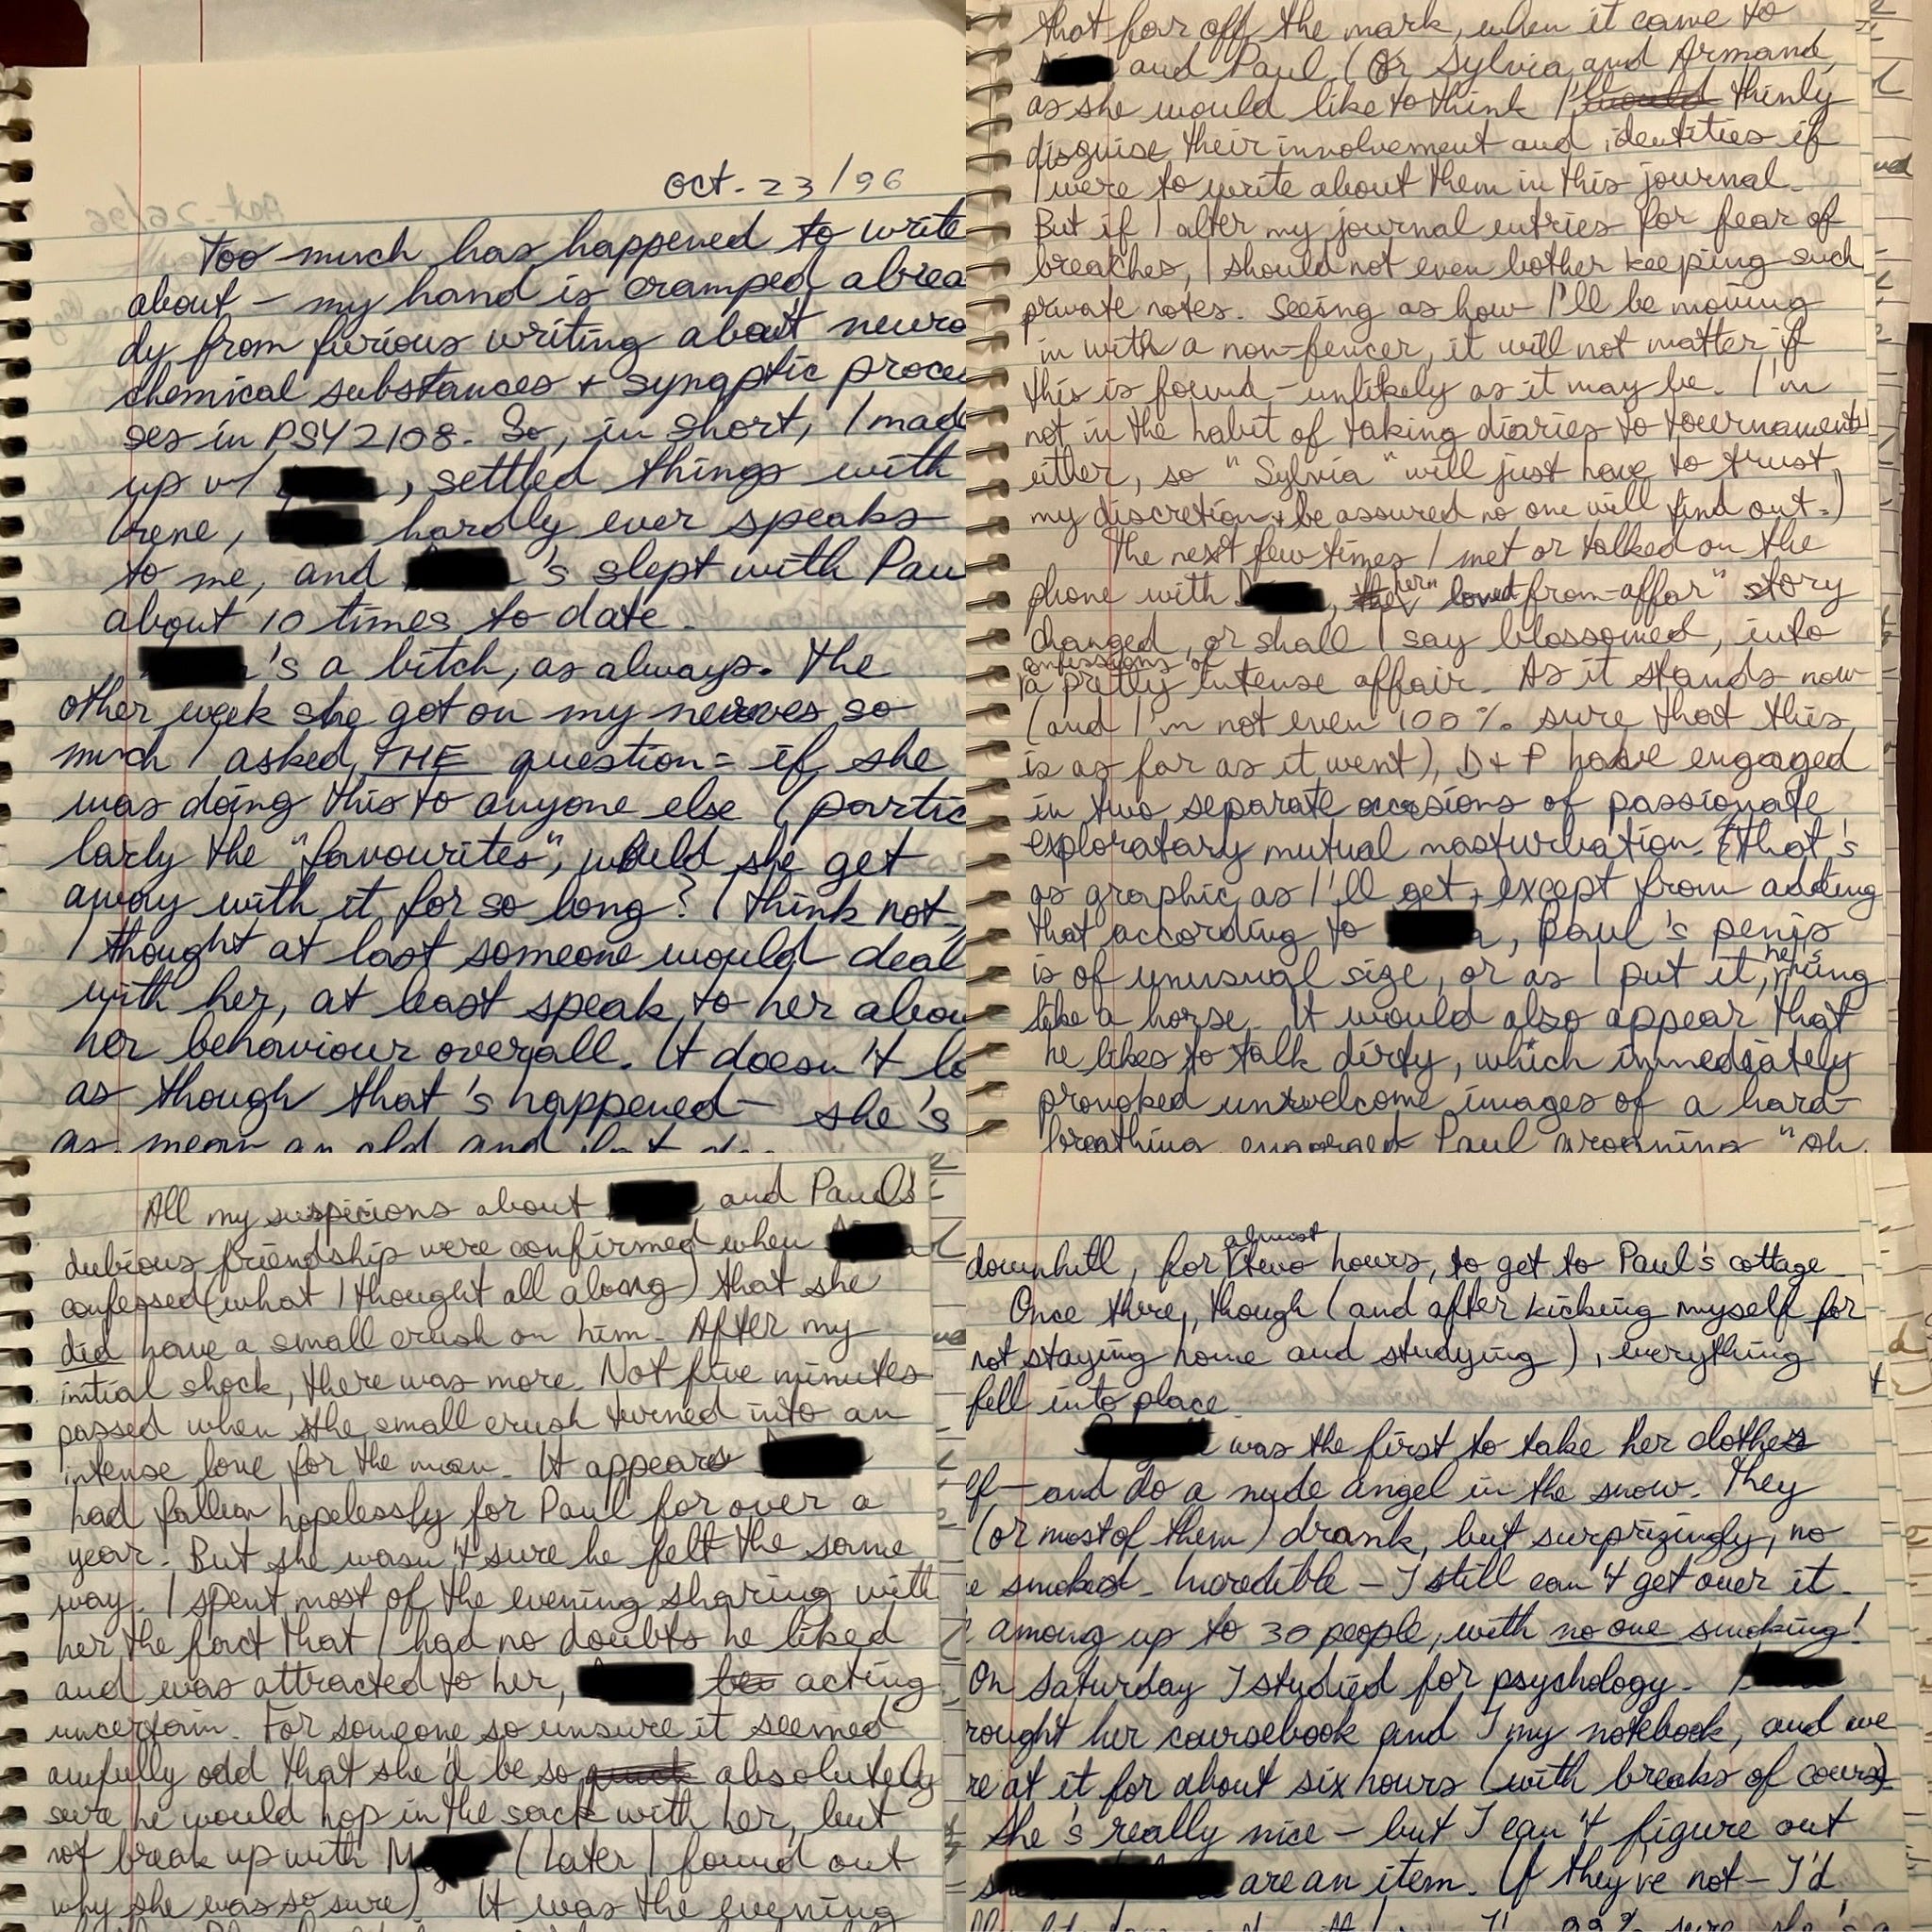 Oct. 23/96
Too much has happened to write
about – my hand is cramped alrea
dy from furious writing about neuro
chemical substances + synaptic proce
ses in PSY2108. So, in short, I mad
up w/ , settled things with
Irene, hardly ever speaks
to me, and 's slept with Pau
about 10 times to date.
's a bitch, as always. The
other week she got on my nerves so
much I asked THE question = if she
was doing this to anyone else (partic
larly the "favourites", would she get
away with it for so long? I think not.
I thought at last someone would deal
with her, at least speak to her abou
her behaviour overall. It doesn't lo
as though that's happened – she's
as mean an old and
that far off the mark, when it came to
and Paul (Or Sylvia and Armand,
as she would like to think I'd would thinly
disguise their involvement and identities if
I were to write about them in this journal.
But if I alter my journal entries for fear of
breaches, I should not even bother keeping such
private notes. Seeing as how I'll be moving
in with a non-fencer, it will not matter if
this is found – unlikely as it may be. I'm
not in the habit of taking diaries to tournaments
either, so "Sylvia" will just have to trust
my discretion + be assured no one will find out.)
The next few times I met or talked on the
phone with , the her "loved from-affar" story
changed, or shall I say blossomed, into
confessions of
a pretty intense affair. As it stands now
(and I'm not even 100% sure that this
is as far as it went), D + P have engaged
in two separate occasions of passionate
exploratary mutual masturbation. (that's
as graphic as I'll get, except from adding
that according to , Paul's penis
is of unusual size, or as I put it, he's hung
like a horse. It would also appear that
he likes to talk dirty, which immediately
provoked unwelcome images of a hard-
breathing, engorged Paul groaning "oh,
All my suspicions about and Paul's
dubious friendship were confirmed when
confessed (what I thought all along) that she
did have a small crush on him. After my
initial shock, there was more. Not five minutes
passed when the small crush turned into an
intense love for the man. It appears
had fallen hopelessly for Paul for over a
year. But she wasn't sure he felt the same
way. I spent most of the evening sharing with
her the fact that I had no doubts he liked
and was attracted to her, be acting
uncertain. For someone so unsure it seemed
awfully odd that she'd be so quick absolutely
sure he would hop in the sack with her, but
not break up with M (later I found out
why she was so sure) It was the evening
downhill, for almost two hours, to get to Paul's cottage.
Once there, though (and after kicking myself for
not staying home and studying), everything
fell into place.
was the first to take her clothes
ff – and do a nude angel in the snow. They
(or most of them) drank, but surprizingly, no
e smoked. Incredible – I still can't get over it.
among up to 30 people, with no one smoking!
On Saturday I studied for psychology.
rought her coursebook and I my notebook, and we
re at it for about six hours (with breaks of course)
She's really nice – but I can't figure out
are an item. If they've not – I'd